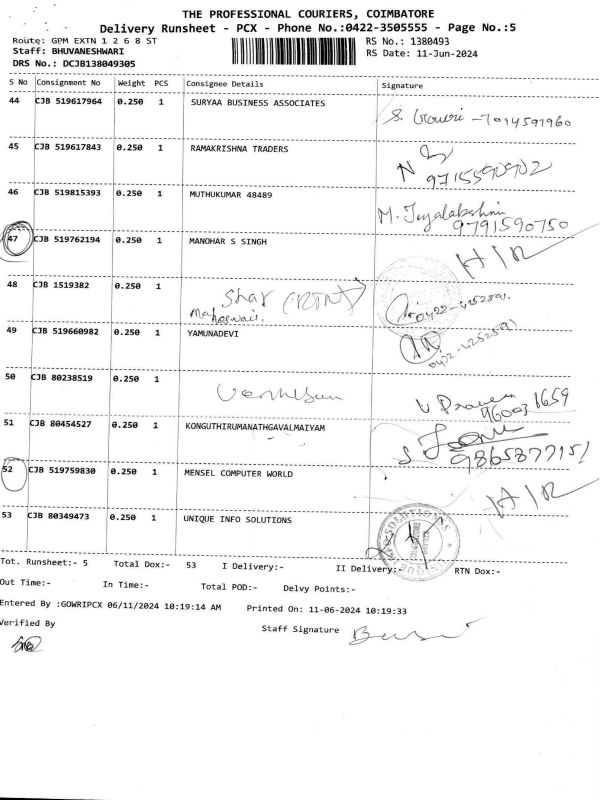 THE PROFESSIONAL COURIERS, COIMBATORE
Delivery Runsheet - PCX - Phone No.:0422-3505555 - Page No.:5
Route: GPM EXTN 1 2 6 8 ST
RS No.: 1380493
Staff: BHUVANESHWARI
RS Date: 11-Jun-2024
DRS No.: DCJB138049305
S No Consignment No Weight PCS Consignee Details Signature
44 CJB 519617964 0.250 1 SURYAA BUSINESS ASSOCIATES
S. Gowri - 7094597960
45 CJB 519617843 0.250 1 RAMAKRISHNA TRADERS
9715590902
46 CJB 519815393 0.250 1 MUTHUKUMAR 48489
M. Jeyalakshmi
9791590750
47 CJB 519762194 0.250 1 MANOHAR S SINGH
H/R
48 CJB 1519382 0.250 1 Star (RTN)
0422-4252891
49 CJB 519660982 0.250 1 YAMUNADEVI
0422-4252891
50 CJB 80238519 0.250 1
V Praveen
51 CJB 80454527 0.250 1 KONGUTHIRUMANATHGAVALMAIYAM
9865877151
52 CJB 519759830 0.250 1 MENSEL COMPUTER WORLD
H/R
53 CJB 80349473 0.250 1 UNIQUE INFO SOLUTIONS
SOLUTIONS
Tot. Runsheet:- 5 Total Dox:- 53 I Delivery:- II Delivery:- RTN Dox:-
Out Time:- In Time:- Total POD:- Delvy Points:-
Entered By :GOWRIPCX 06/11/2024 10:19:14 AM Printed On: 11-06-2024 10:19:33
Verified By Staff Signature